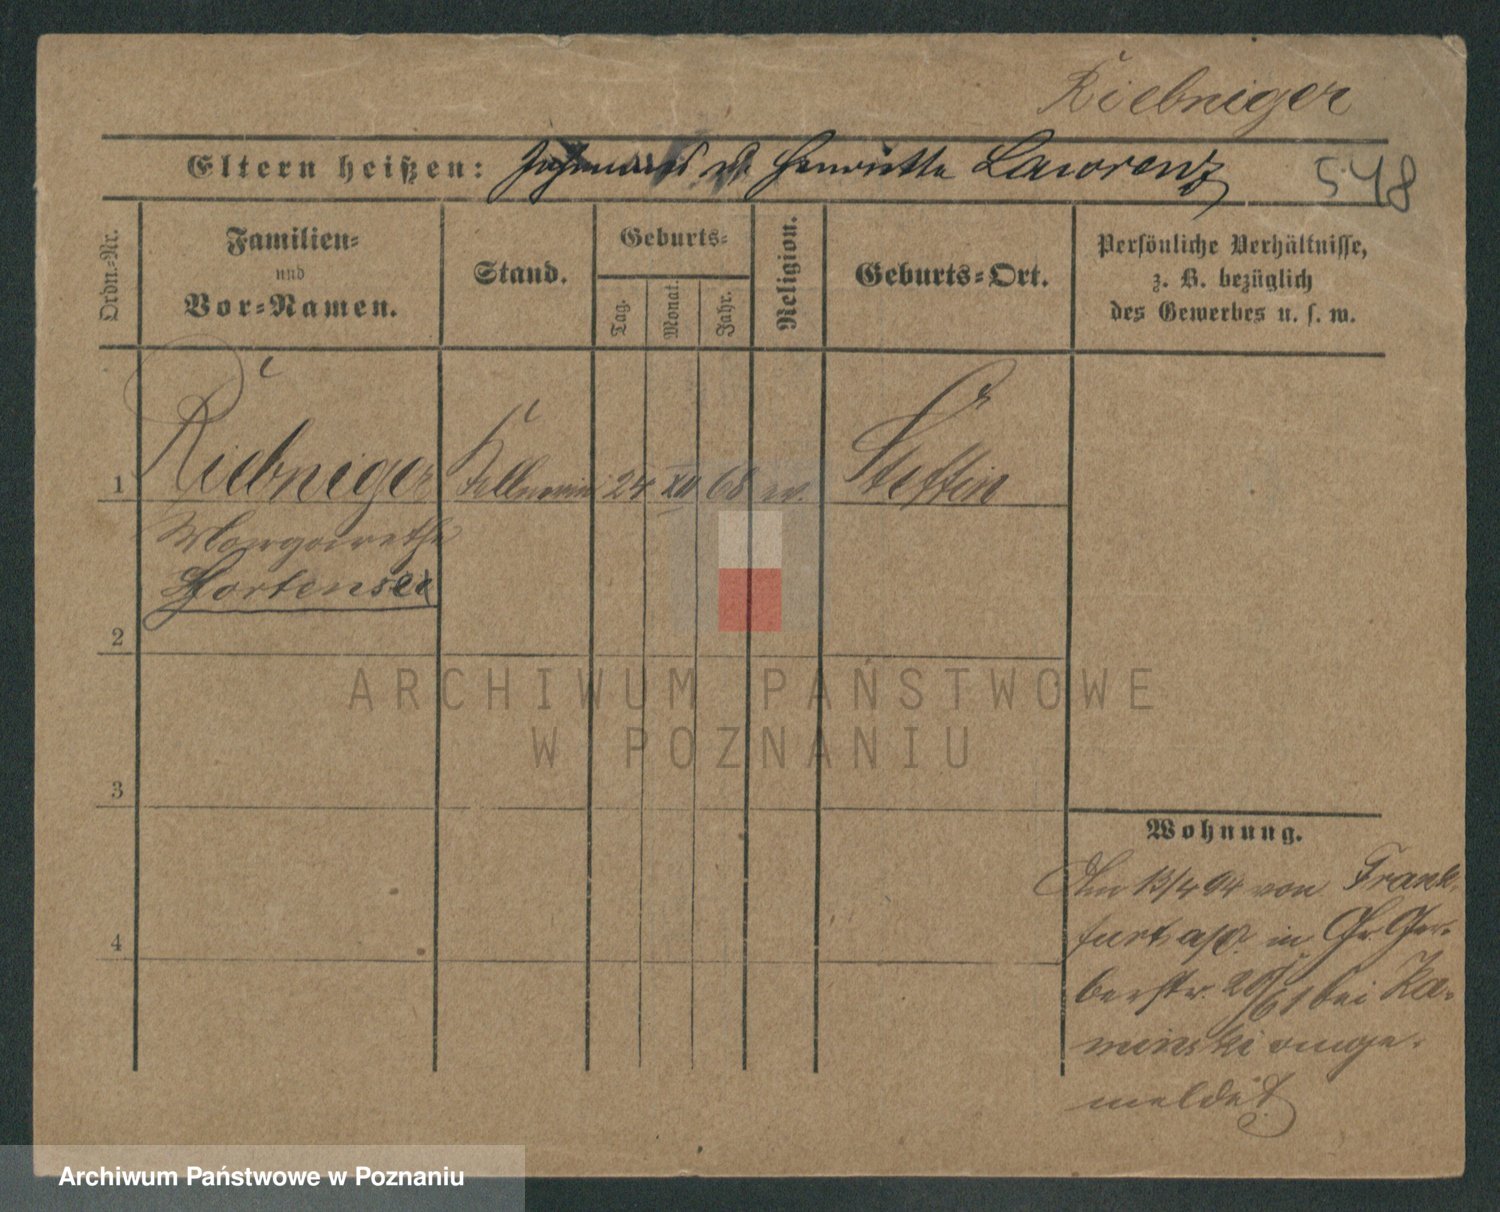 Riebniger
Eltern heißen: u. Henriette Laworenz
548
Ordn.-Nr.
Familien-
und
Vor-Namen.
Stand.
Geburts-
Tag.
Monat.
Jahr.
Religion.
Geburts-Ort.
Persönliche Verhältnisse,
z. B. bezüglich
des Gewerbes u. s. w.
1 Riebniger Kellnerin 24 XII 68 ev. Stettin
Margarethe
Hortensei
2
3
4
Wohnung.
Am 13/4 94 von Frank-
furt a/O. in Gr. Ger-
berstr. bei Ka-
minski ange-
meldet
ARCHIWUM PAŃSTWOWE
W POZNANIU
Archiwum Państwowe w Poznaniu